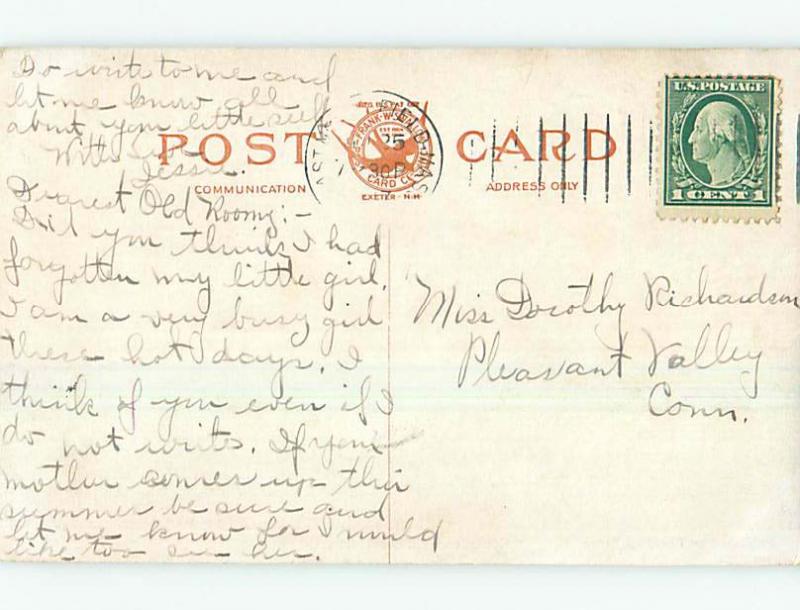 Do write to me and
let me know all
about your little self
With love
Jessie.
POST CARD
COMMUNICATION
ADDRESS ONLY
REG. U.S. PAT. OFF.
FRANK W. SWALLOW
POST CARD CO.
EXETER - N.H.
25
30 P
MASS
U.S. POSTAGE
1 CENT 1
Dearest Old Roomy:-
Did you think I had
forgotten my little girl.
I am a very busy girl
these hot days. I
think of you even if I
do not write. If your
mother comes up this
summer be sure and
let me know for I would
like too see her.
Miss Dorothy Richardson
Pleasant Valley
Conn.